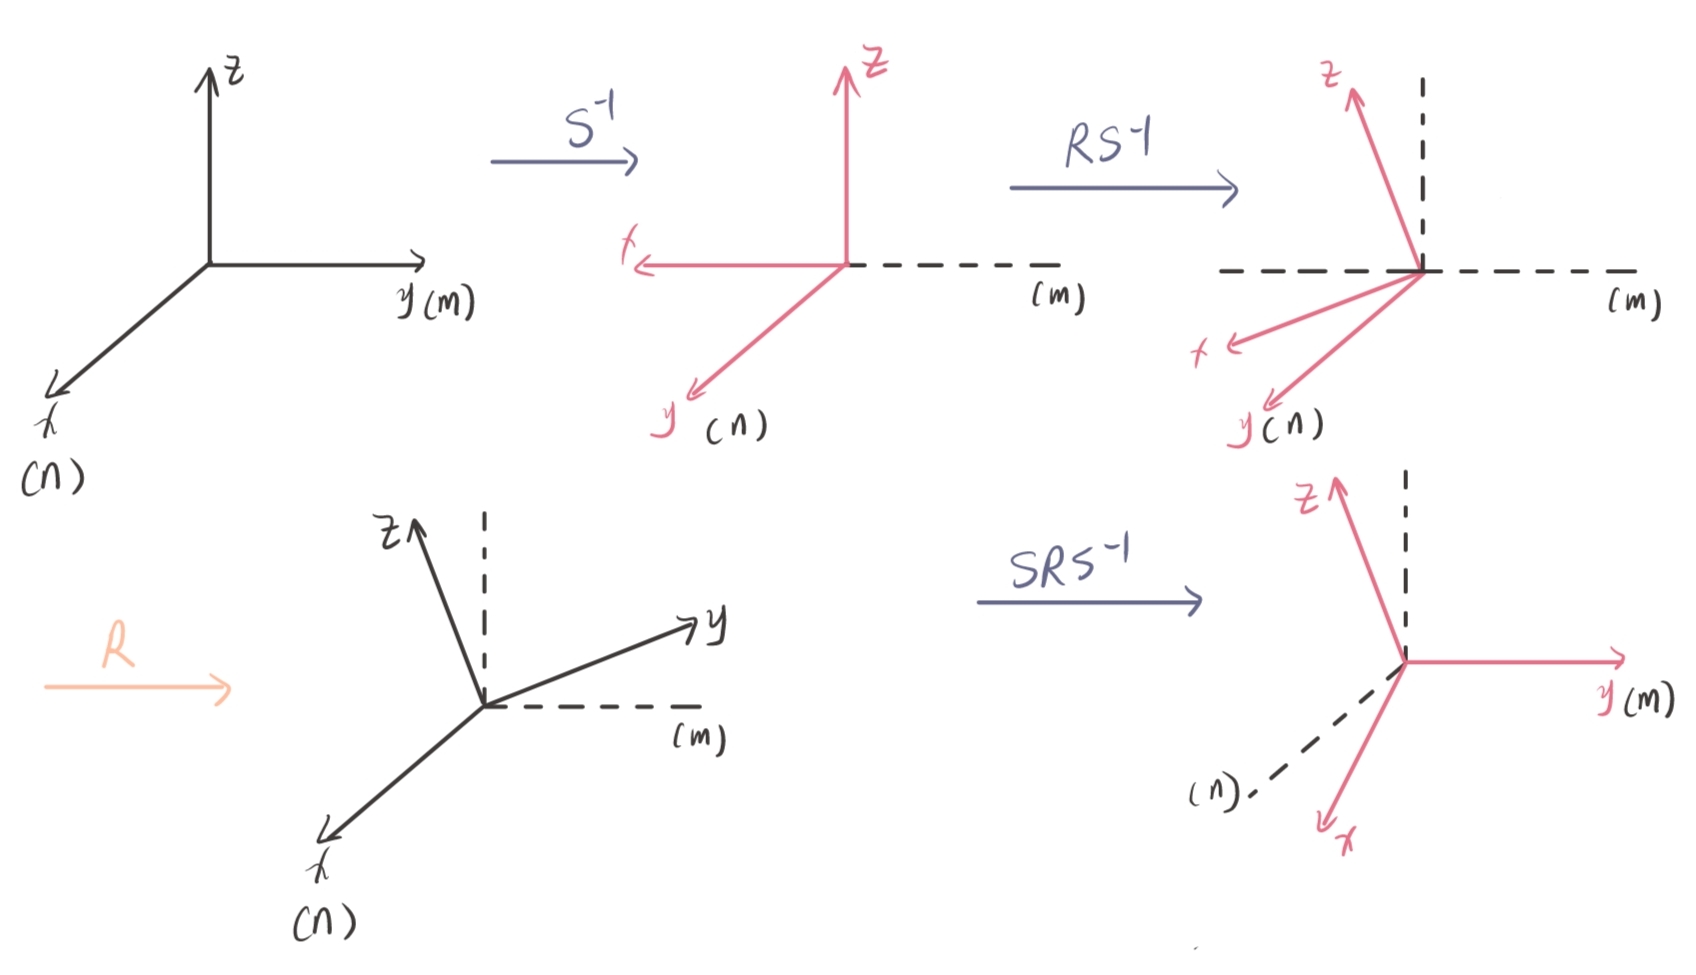 z
y (m)
x
(n)
S⁻¹
z
x
(m)
y (n)
RS⁻¹
z
(m)
x
y (n)
R
z
y
(m)
x
(n)
SRS⁻¹
z
y (m)
(n)
x